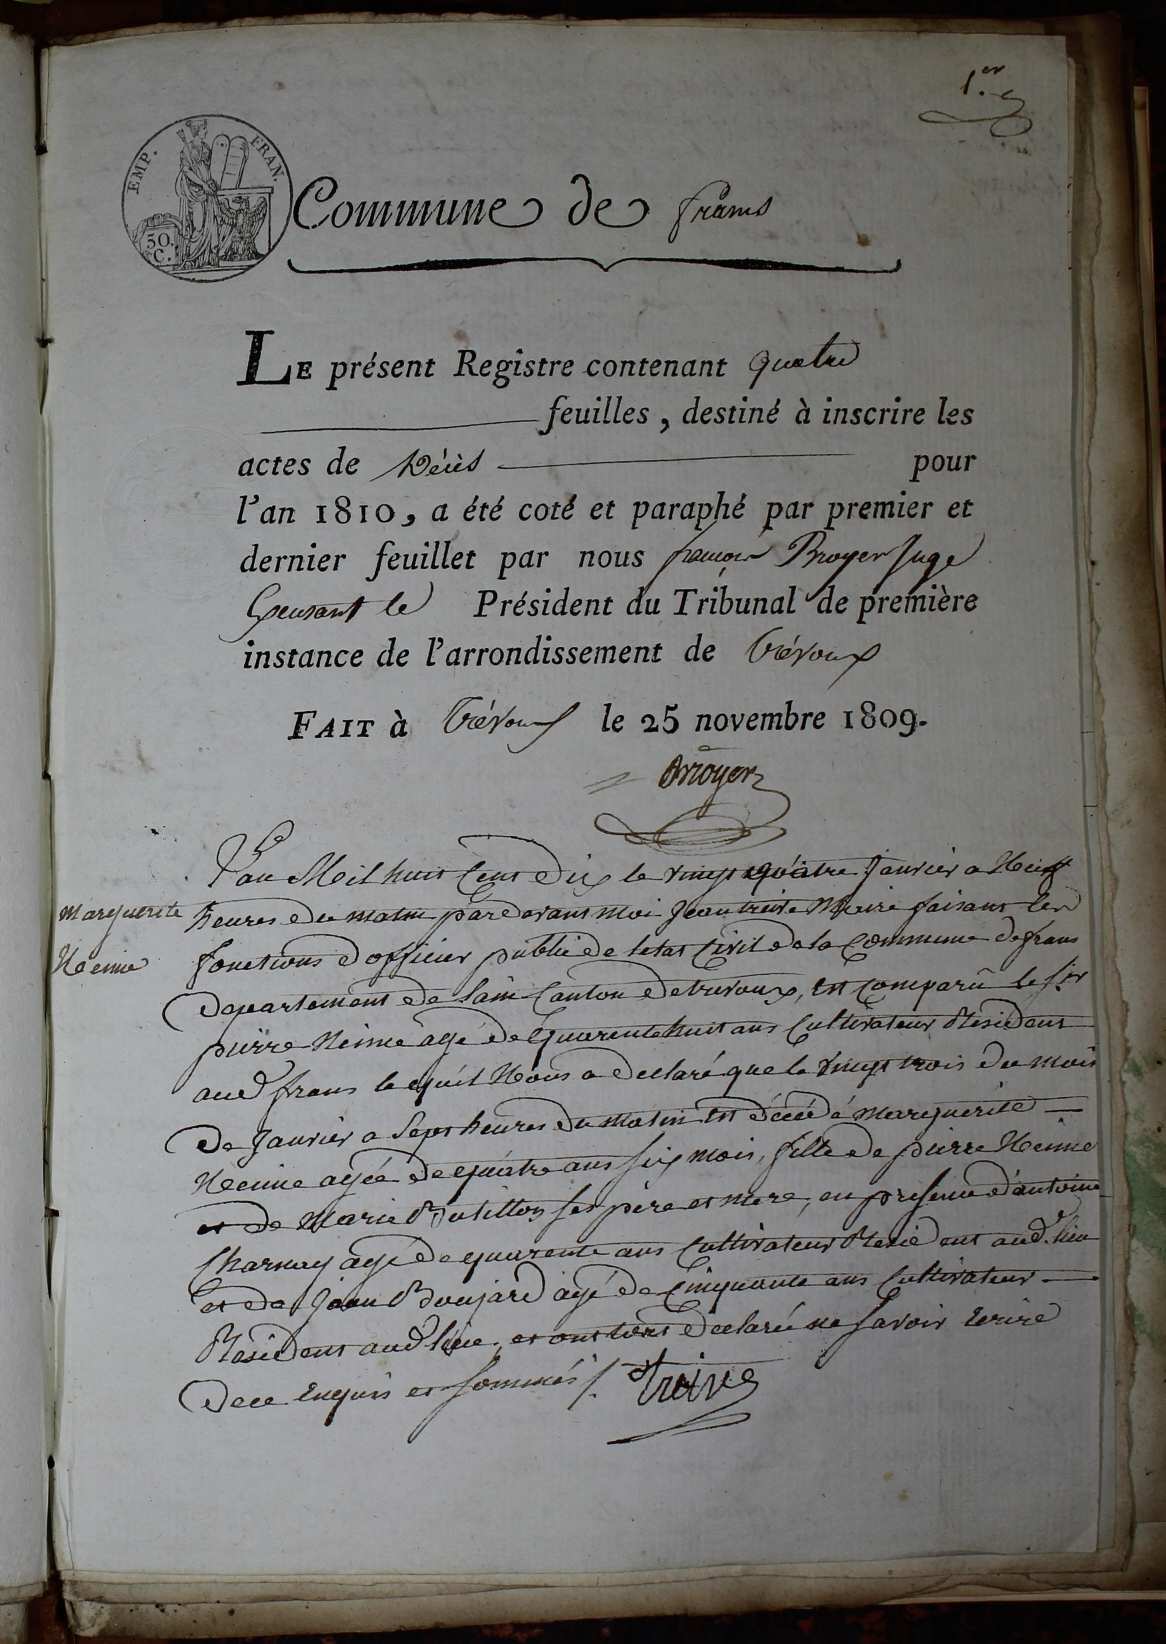 1.er
EMP. FRAN.
50.
C.
Commune de frans
LE présent Registre contenant quatre
feuilles, destiné à inscrire les
actes de Décès pour
l'an 1810, a été coté et paraphé par premier et
dernier feuillet par nous françois Broyer Juge
Exerçant le Président du Tribunal de première
instance de l'arrondissement de Trévoux
FAIT à Trévoux le 25 novembre 1809.
Broyer
L'an Mil huit Cent Dix le vingt quatre Janvier a Neuf
Marguerite
heures du matin pardevant moi Jean treive Maire faisant les
Neime
fonctions d'officier public de letat Civil de la Commune de frans
departement de Lain Canton de trevoux, est Comparû le Sr
pierre Neime âgé de quarente huit ans Cultivateur Résident
aud frans lequel Nous a declaré que le vingt trois du mois
de Janvier a Sept heures du matin est décédé Marguerite
Neime agée de quatre ans six mois, fille de pierre Neime
et de Marie Butillon ses père et mere, en presence d'antoine
Charnay agé de quarente ans Cultivateur Résident aud. lieu
et de Jean Boujard agé de Cinquante ans Cultivateur
Résident aud lieu, et ont tous declaré ne savoir Ecrire
de ce Enquis et sommés /. Treive